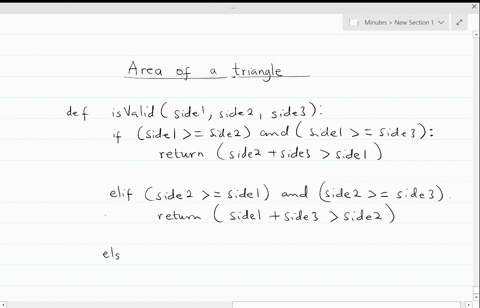 Minutes > New Section 1
Area of a triangle
def isValid(side1, side2, side3):
if (side1 >= side2) and (side1 >= side3):
return (side2 + side3 > side1)
elif (side2 >= side1) and (side2 >= side3).
return (side1 + side3 > side2)
els